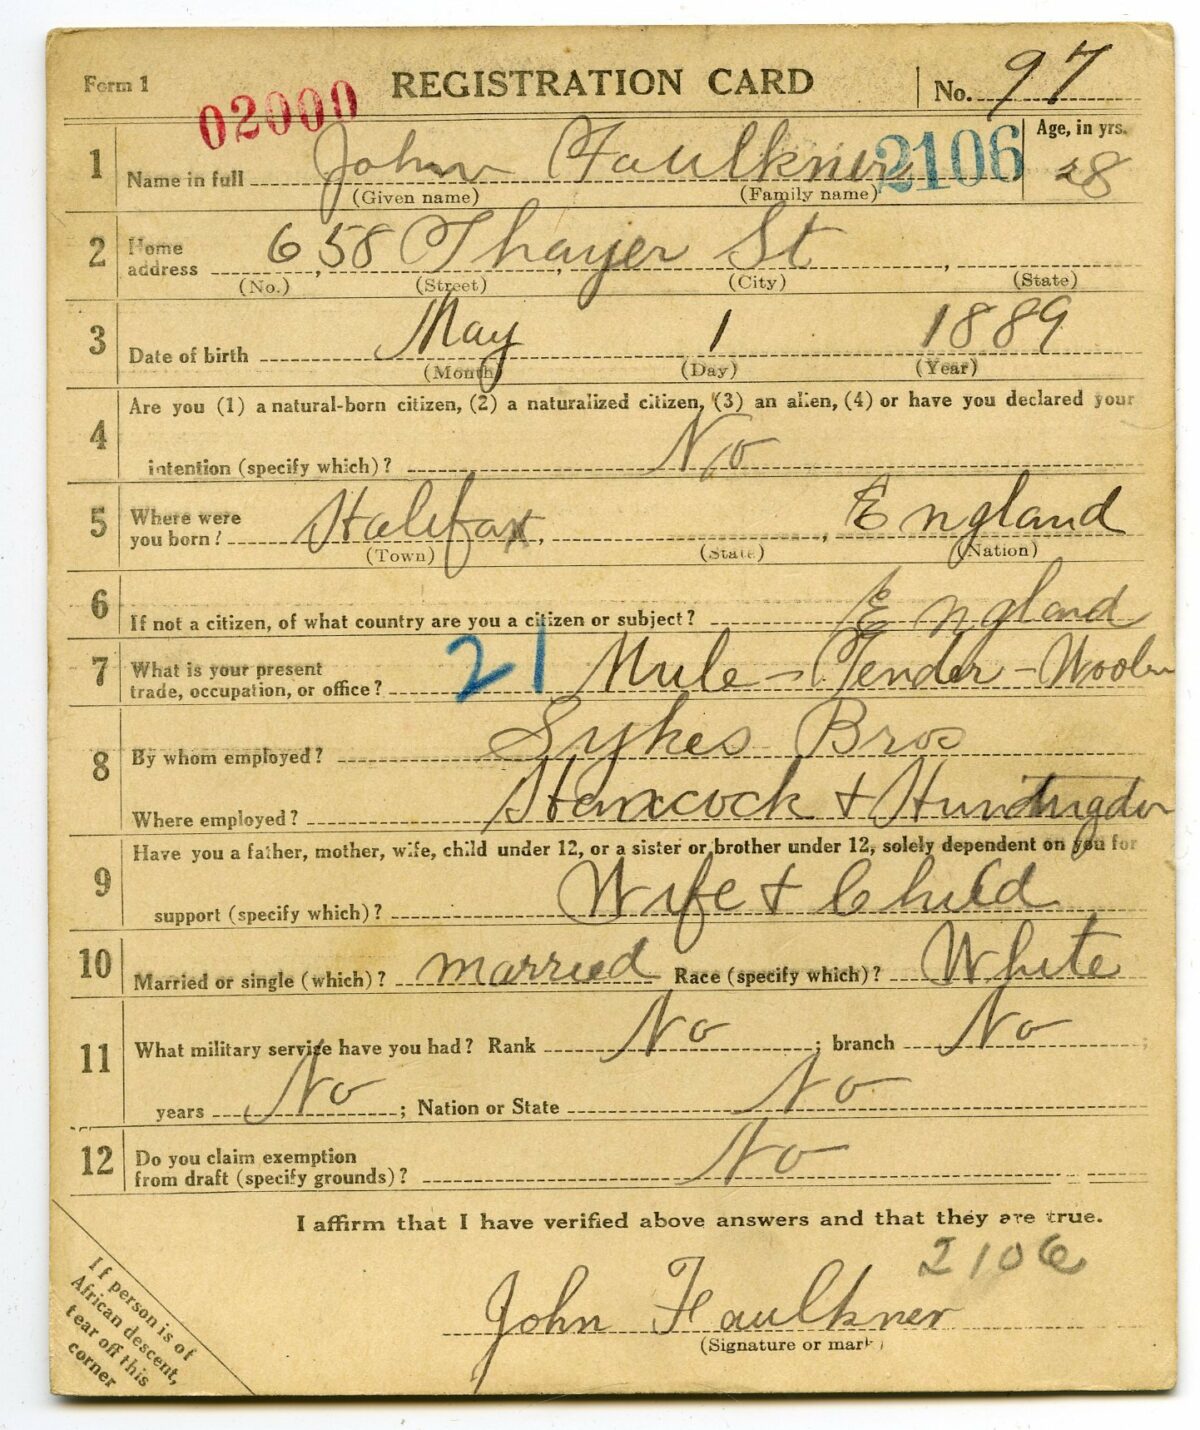 Form 1 REGISTRATION CARD No. 97
02000
1 Name in full John Faulkner 2106 Age, in yrs. 28
(Given name) (Family name)
2 Home address 658 Thayer St
(No.) (Street) (City) (State)
3 Date of birth May 1 1889
(Month) (Day) (Year)
4 Are you (1) a natural-born citizen, (2) a naturalized citizen, (3) an alien, (4) or have you declared your
intention (specify which)? No
5 Where were you born? Halifax, England
(Town) (State) (Nation)
6 If not a citizen, of what country are you a citizen or subject? England
7 What is your present
trade, occupation, or office? 21 Mule-Tender-Woolen
8 By whom employed? Sykes Bros
Where employed? Hancock + Huntingdon
9 Have you a father, mother, wife, child under 12, or a sister or brother under 12, solely dependent on you for
support (specify which)? Wife + Child
10 Married or single (which)? married Race (specify which)? White
11 What military service have you had? Rank No ; branch No ;
years No ; Nation or State No
12 Do you claim exemption
from draft (specify grounds)? No
I affirm that I have verified above answers and that they are true.
2106
John Faulkner
(Signature or mark)
If person is of
African descent,
tear off this
corner